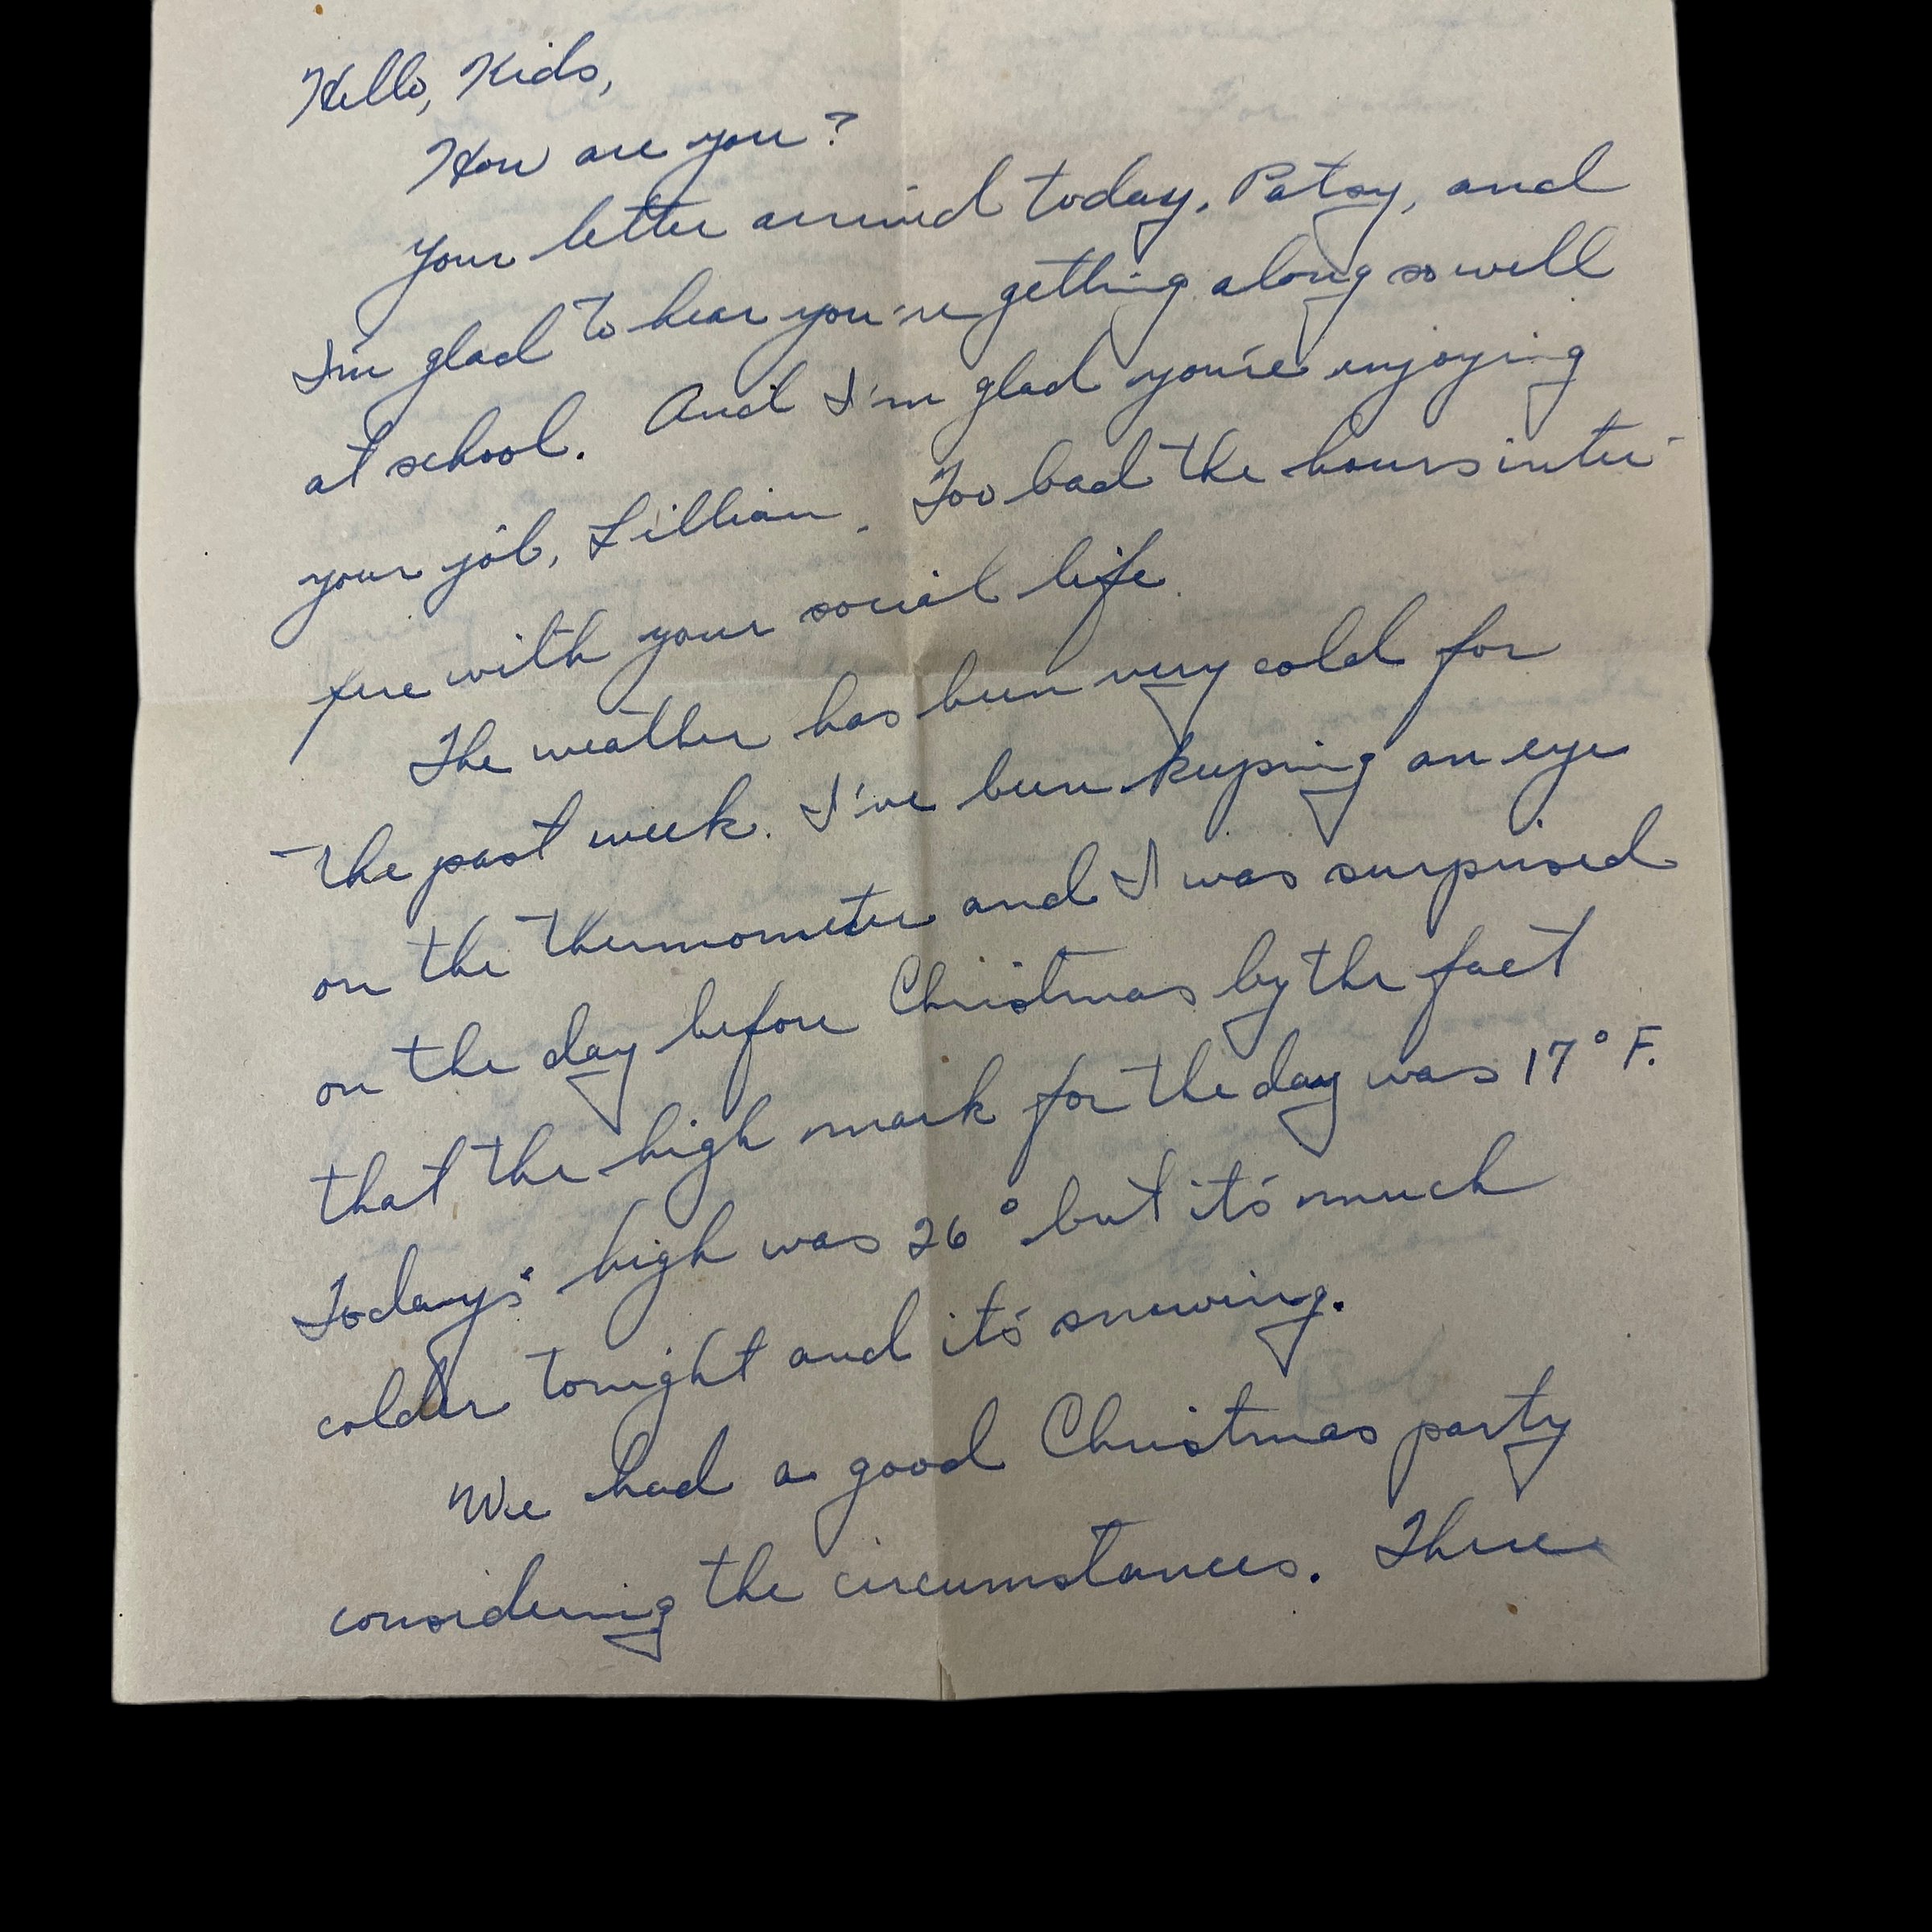 Hello, Kids,
How are you?
Your letter arrived today, Patsy, and
I'm glad to hear you're getting along so well
at school. And I'm glad you're enjoying
your job, Lillian. Too bad the hours inter-
fere with your social life.
The weather has been very cold for
the past week. I've been keeping an eye
on the thermometer and I was surprised
on the day before Christmas by the fact
that the high mark for the day was 17° F.
Today's high was 26° but it's much
colder tonight and it's snowing.
We had a good Christmas party
considering the circumstances. There